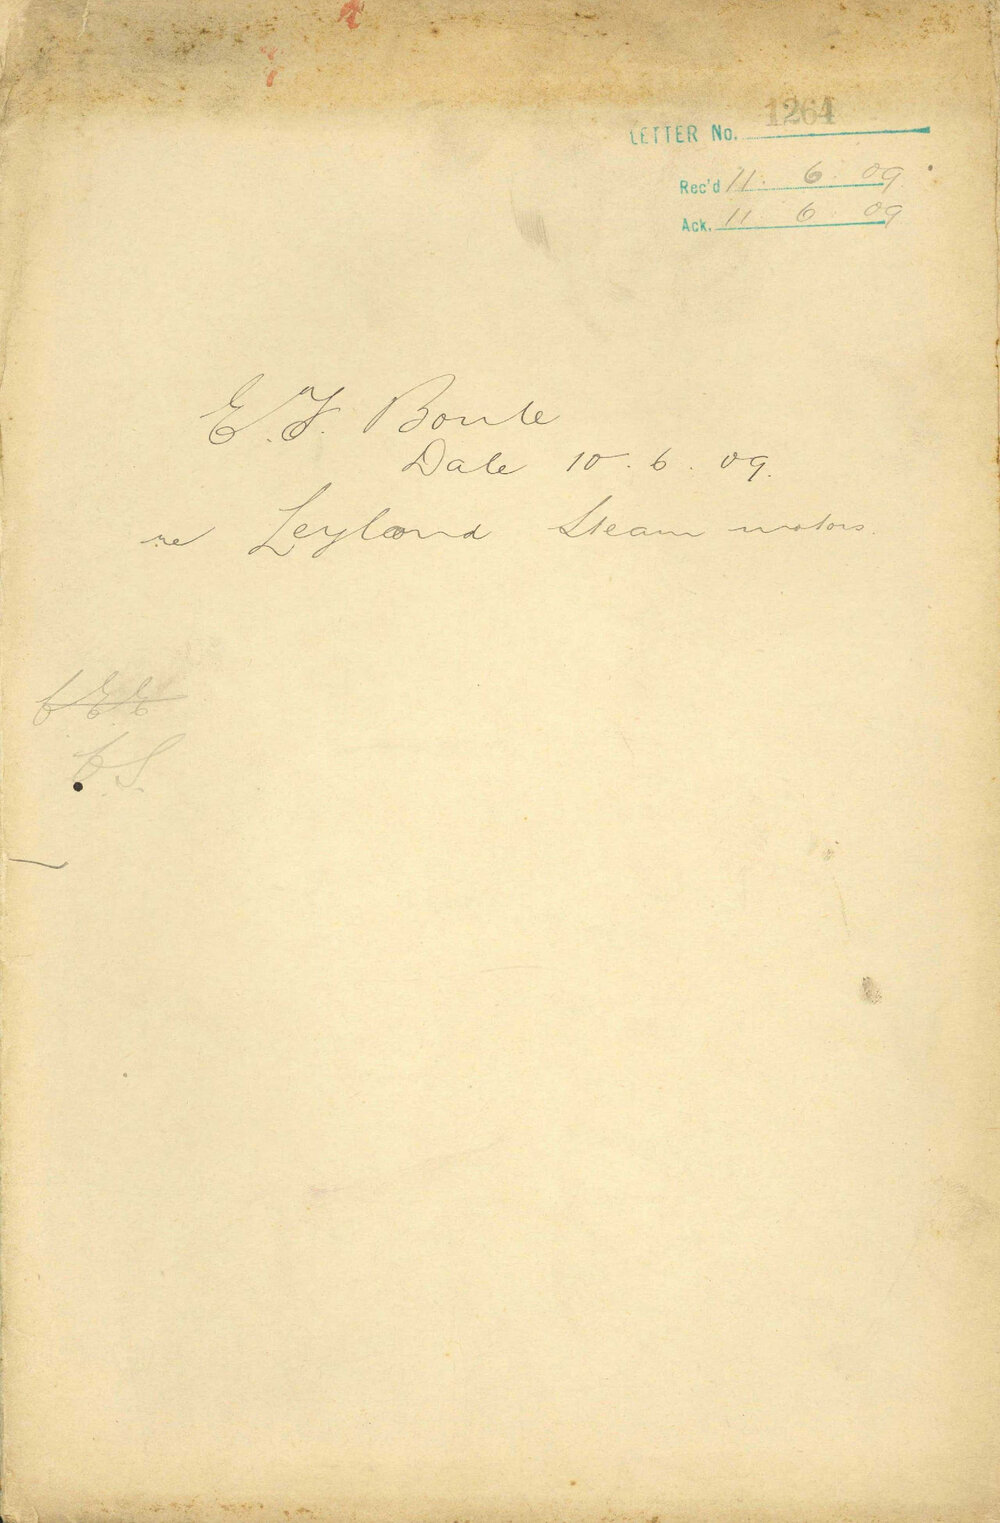 LETTER No. 1264
Rec'd 11. 6 09
Ack. 11 6 09
E. F. Boule
Date 10. 6. 09.
re Leyland Steam motors.
C.S.